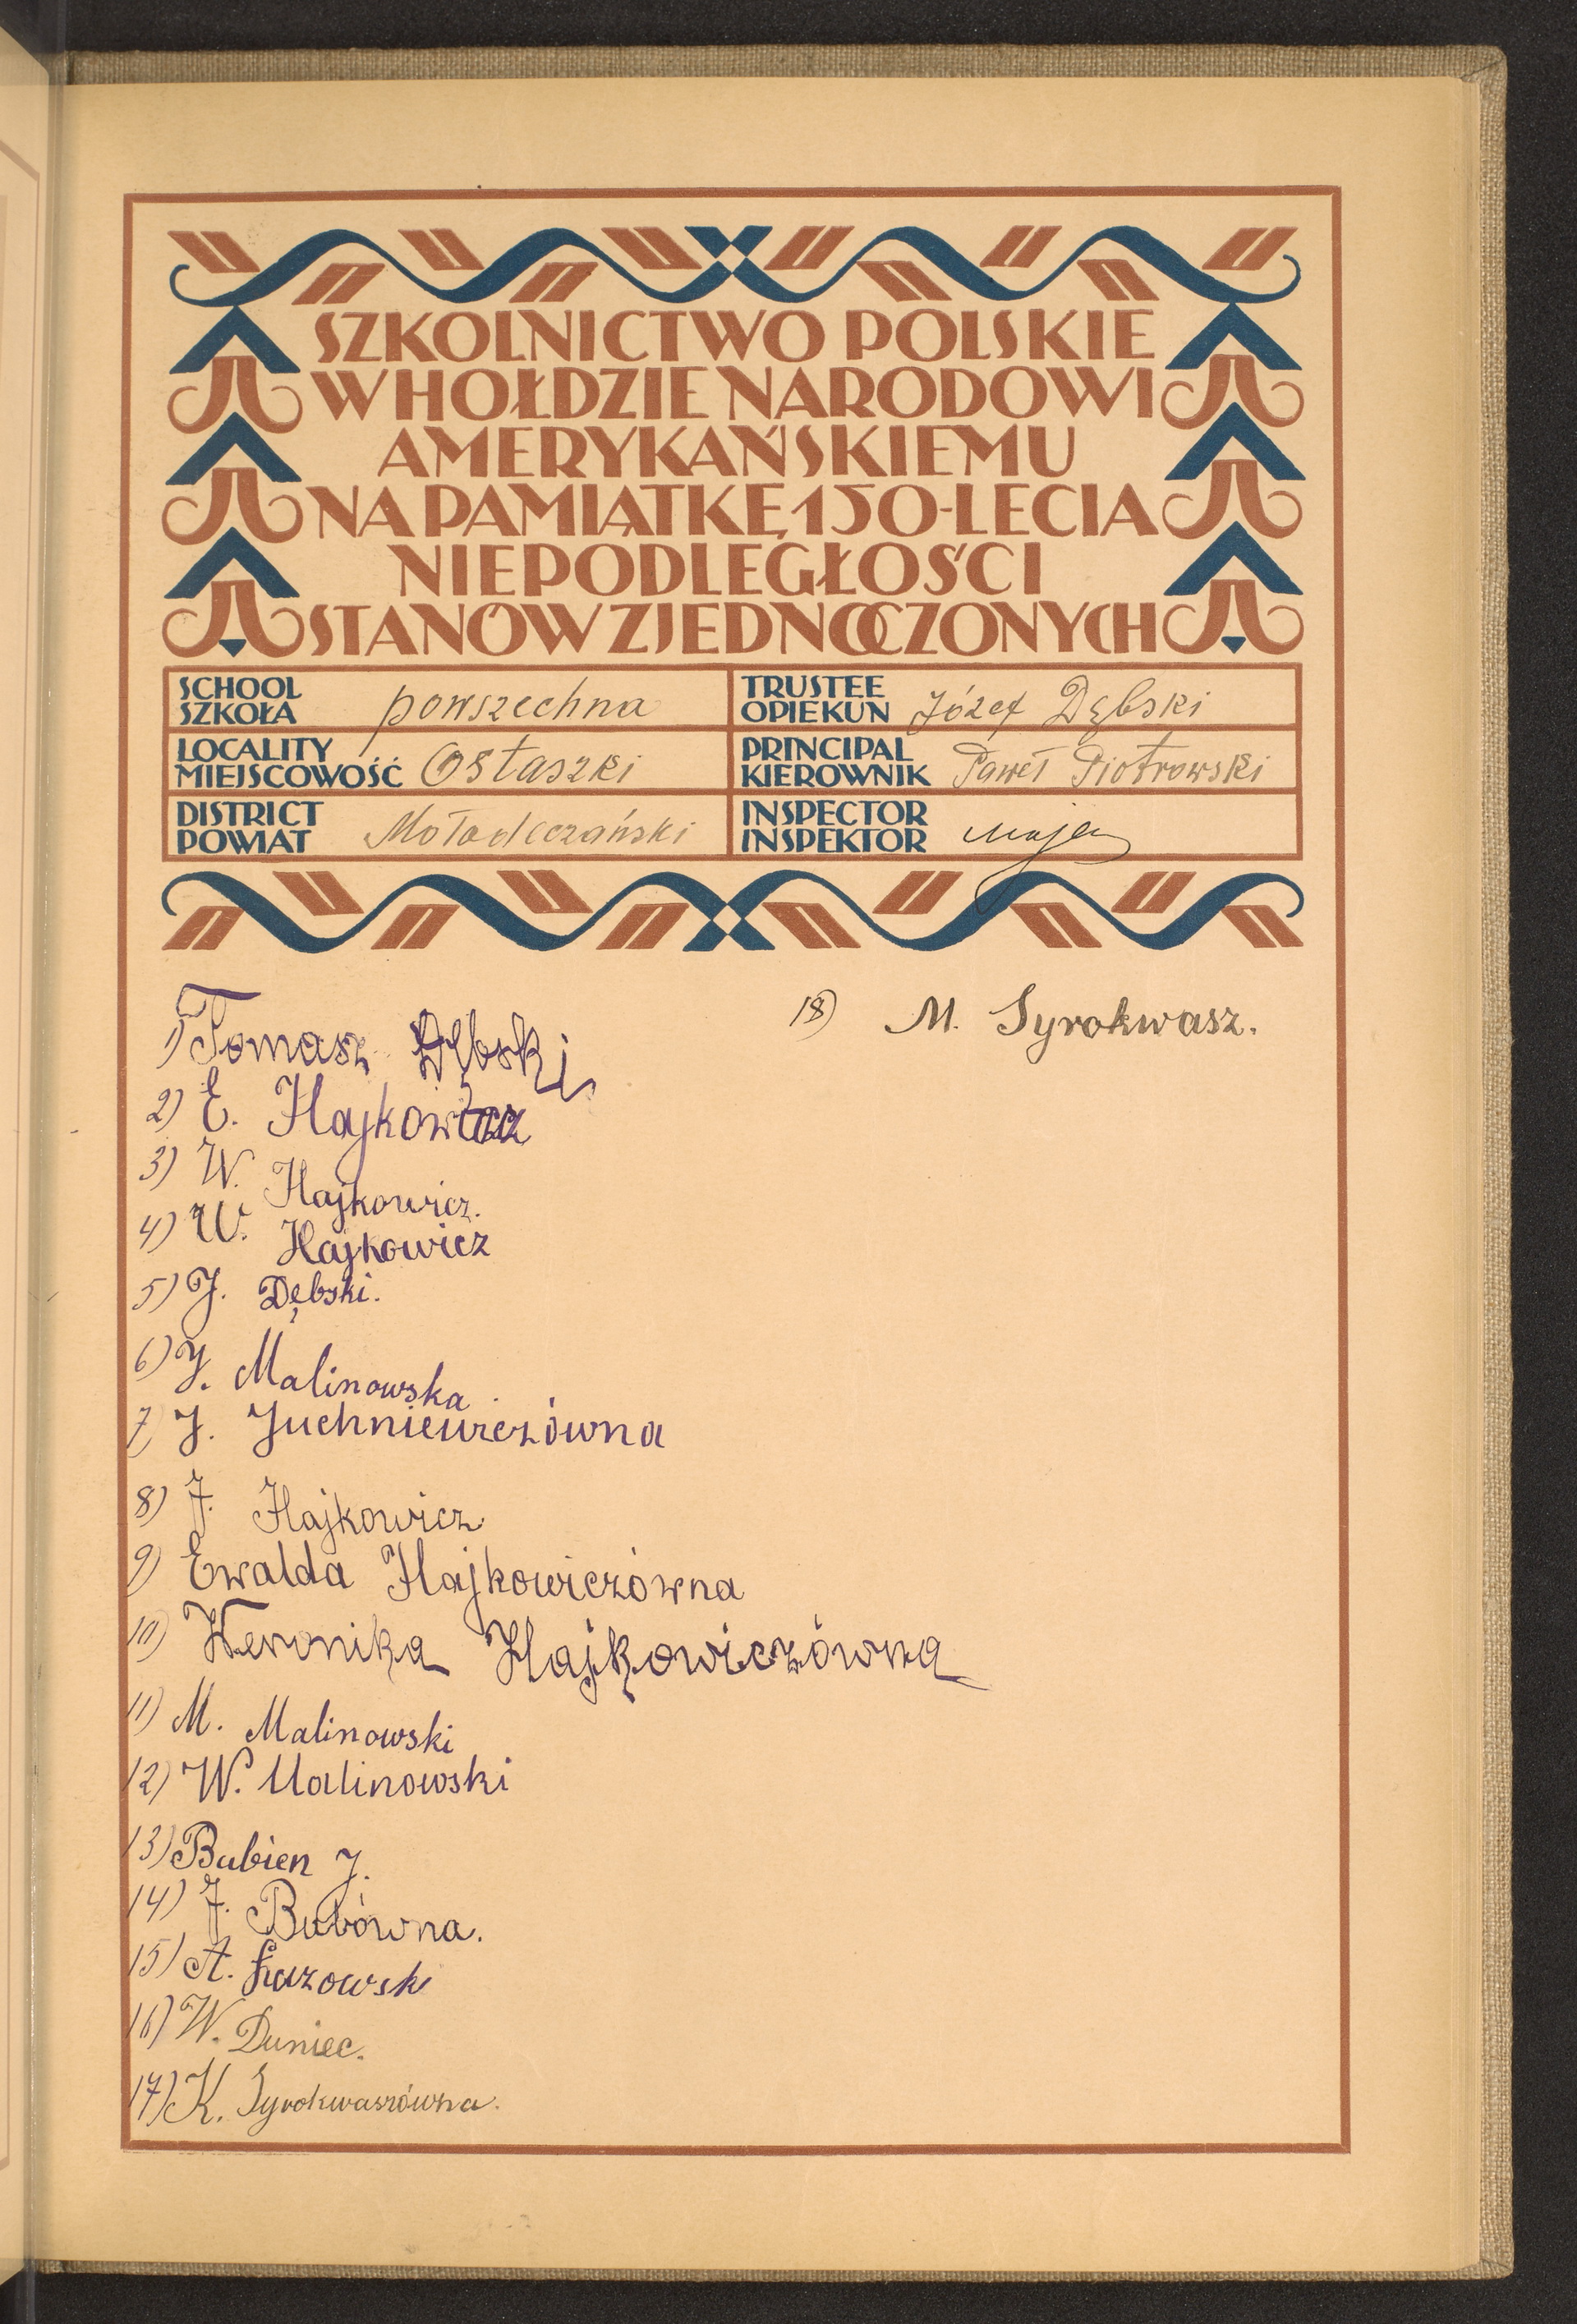 SZKOLNICTWO POLSKIE
W HOŁDZIE NARODOWI
AMERYKAŃSKIEMU
NA PAMIĄTKĘ 150-LECIA
NIEPODLEGŁOŚCI
STANÓW ZJEDNOCZONYCH
SCHOOL
SZKOŁA powszechna
TRUSTEE
OPIEKUN Józef Dębski
LOCALITY
MIEJSCOWOŚĆ Ostaszki
PRINCIPAL
KIEROWNIK Paweł Piotrowski
DISTRICT
POWIAT Mołodeczański
INSPECTOR
INSPEKTOR
1) Tomasz Dębski
2) E. Hajkowicz
3) W. Hajkowicz.
4) W. Hajkowicz
5) J. Dębski.
6) J. Malinowska
7) J. Juchniewiczówna
8) J. Hajkowicz
9) Ewalda Hajkowiczówna
10) Weronika Hajkowiczówna
11) M. Malinowski
12) W. Malinowski
13) Bubien J.
14) J. Bubówna.
15) A. Łazowski
16) W. Duniec.
17) K. Syrokwaszówna.
18) M. Syrokwasz.